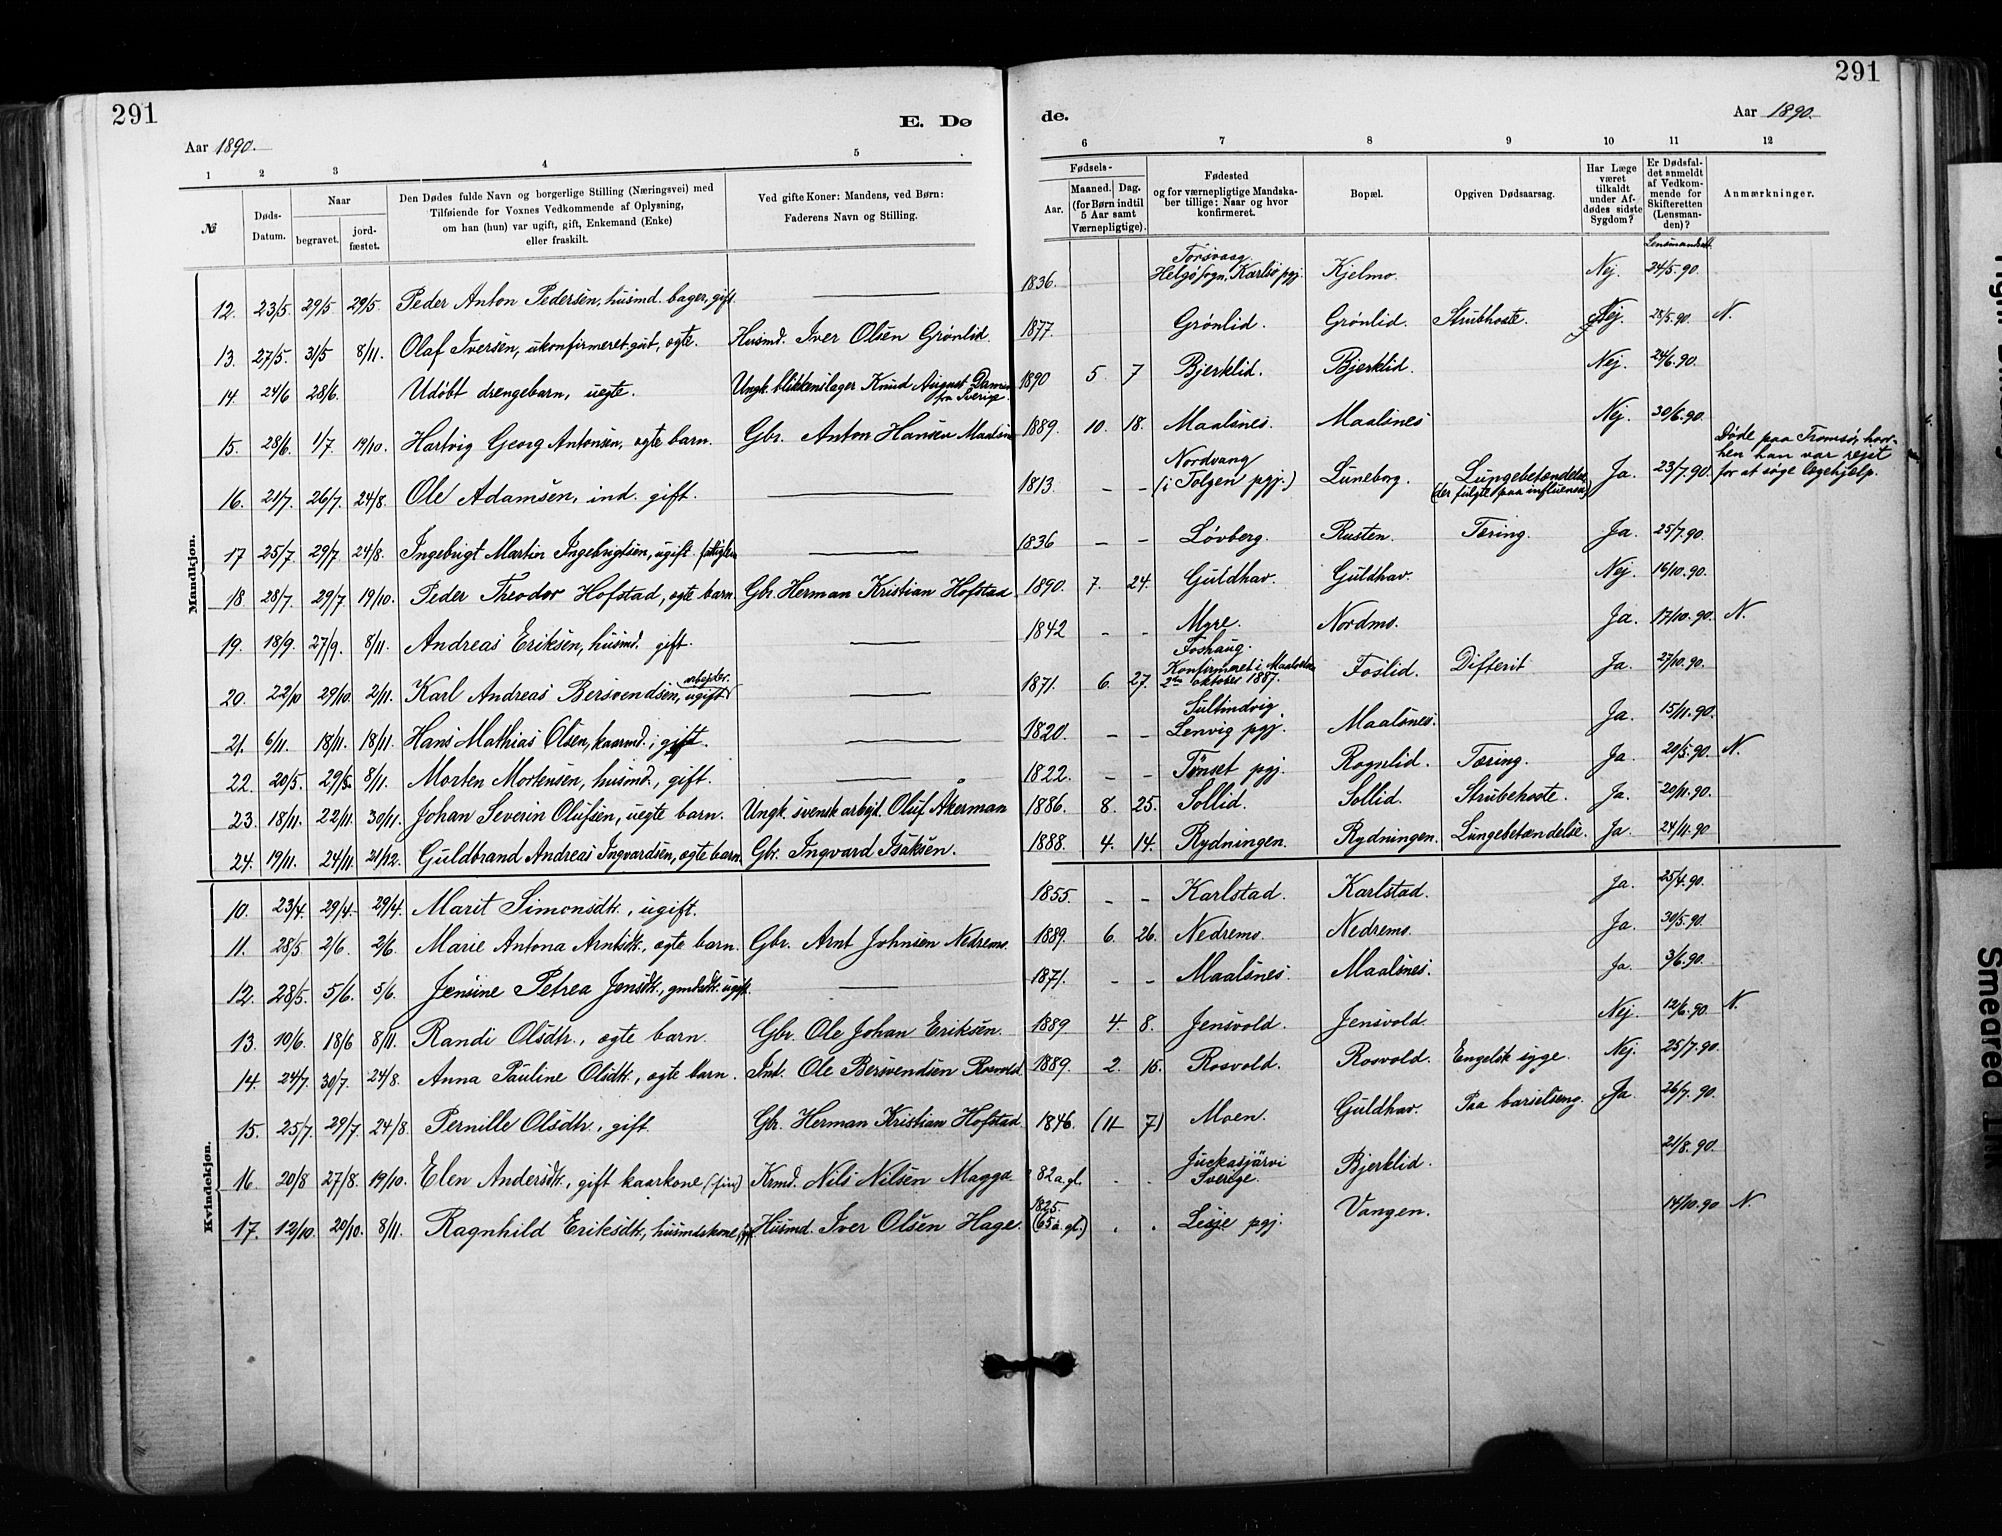 291
291
E. Dø
de.
Aar 1890.
Aar 1890.
1 2 3 4 5 6 7 8 9 10 11 12
№
Døds-Datum.
Naar
begravet.
jord-fæstet.
Den Dødes fulde Navn og borgerlige Stilling (Næringsvei) med
Tilføiende for Voxnes Vedkommende af Oplysning,
om han (hun) var ugift, gift, Enkemand (Enke)
eller fraskilt.
Ved gifte Koner: Mandens, ved Børn:
Faderens Navn og Stilling.
Fødsels-
Aar.
Maaned. Dag.
(for Børn indtil
5 Aar samt
Værnepligtige).
Fødested
og for værnepligtige Mandska-
ber tillige: Naar og hvor
konfirmeret.
Bopæl.
Opgiven Dødsaarsag.
Har Læge
været
tilkaldt
under Af-
dødes sidste
Sygdom?
Er Dødsfal-
det anmeldt
af Vedkom-
mende for
Skifteretten
(Lensman-
den)?
Anmærkninger.
Mandkjøn.
12. 23/5. 29/5 29/5. Peder Anton Pedersen, husmd. bager, gift. 1836. Torsvaag Helgø sogn, Karlsø pgj. Kjelmo. Nej. 24/5.90.
13. 27/5. 31/5 8/11. Olaf Iversen, ukonfirmeret gut, ægte. Husmd. Iver Olsen Grønlid. 1877. Grønlid. Grønlid. Strubhoste. Nej. 28/5.90. N.
14. 24/6 28/6. Udøbt drengebarn, uægte. Ungk. blikkenslager Knud August fra Sverige. 1890 5. 7 Bjerklid. Bjerklid. Nej. 24/6.90.
15. 28/6. 1/7. 19/10. Hartvig Georg Antonsen, ægte barn. Gbr. Anton Hansen Maalsnes 1889. 10. 18. Maalsnes. Maalsnes Nej. 30/6.90.
16. 21/7. 26/7. 24/8. Ole Adamsen, ind. gift. 1813. - - Nordvang (i Tolgen pgj.) Luneborg. Lungebetændelse (der fulgte paa influensa) Ja. 23/7.90. Døde paa Tromsø, hvor-
hen han var rejst
for at søge lægehjælp.
17 25/7. 29/7. 24/8. Ingebrigt Martin Ingebrigtsen, ugift. 1836 - - Løvberg. Rusten. Tæring. Ja. 25/7.90.
18 28/7. 29/7. 19/10. Peder Theodor Hofstad, ægte barn. Gbr. Herman Kristian Hofstad 1890. 7. 24. Guldhav. Guldhav. Nej. 16/10.90.
19. 18/9. 27/9. 8/11. Andreas Eriksen, husmd. gift. 1842 - - Myre. Nordmo. Ja. 17/10.90. N.
20. 22/10 29/10. 2/11. Karl Andreas Bersvendsen, arbejder. ugift 1871. 6. 27. Foshaug. Konfirmeret i Maalselv 2den oktober 1887. Foslid. Difterit Ja. 27/10.90.
21. 6/11. 18/11. 18/11. Hans Mathias Olsen, kaarmd., gift. 1820. - - Sultindvig Lenvig pgj. Maalsnes. Ja. 15/11.90.
22. 20/5. 29/5. 8/11. Morten Mortensen, husmd., gift. 1822. - - Tønset pgj. Rognlid. Tæring. Ja. 20/5.90. N.
23. 18/11. 22/11. 30/11. Johan Severin Olufsen, uegte barn. Ungk. svensk arbejd. Oluf Åkerman 1886. 8. 25. Sollid. Sollid. Strubehoste. Ja. 20/11.90.
24. 19/11. 24/11. 21/12. Guldbrand Andreas Ingvardsen, ægte barn. Gbr. Ingvard Isaksen. 1888. 4. 14. Rydningen. Rydningen. Lungebetændelse. Ja. 24/11.90
Kvindekjøn.
10. 23/4. 29/4. 29/4. Marit Simonsdtr., ugift. 1855. - - Karlstad. Karlstad. Ja. 25/4.90.
11. 28/5. 2/6. 2/6. Marie Antona Arntsdtr., ægte barn. Gbr. Arnt Johnsen Nedremo. 1889. 6. 26. Nedremo. Nedremo. Ja. 30/5.90.
12. 28/5. 5/6. 5/6. Jensine Petrea Jensdtr., gmdsdtr. ugift. 1871. - - Maalsnes. Maalsnes. Ja. 3/6.90.
13. 10/6. 18/6 8/11. Randi Olsdtr., ægte barn. Gbr. Ole Johan Eriksen. 1889. 4. 8. Jensvold. Jensvold. Nej. 12/6.90. N.
14. 24/7. 30/7. 24/8. Anna Pauline Olsdtr., ægte barn. Ind. Ole Bersvendsen Rosvold. 1889. 2. 15. Rosvold. Rosvold. Engelsk syge. Nej. 25/7.90.
15. 25/7. 29/7. 24/8. Pernille Olsdtr., gift. Gbr. Herman Kristian Hofstad. 1846. (11 7) Moen. Guldhav. Paa barselseng. Ja. 26/7.90.
16. 20/8 27/8. 19/10. Elen Andersdtr., gift kaarkone (fin) Krmd. Nils Nilsen Magga 82 a. gl. Juckasjärvi Sverige. Bjerklid. 21/8.90.
17. 12/10. 20/10. 8/11. Ragnhild Eriksdtr., husmdskone, gift. Husmd. Iver Olsen Hage. 1825. (65 a. gl.) Lesje pgj. Vangen. 14/10.90 N.
Smeared Ink